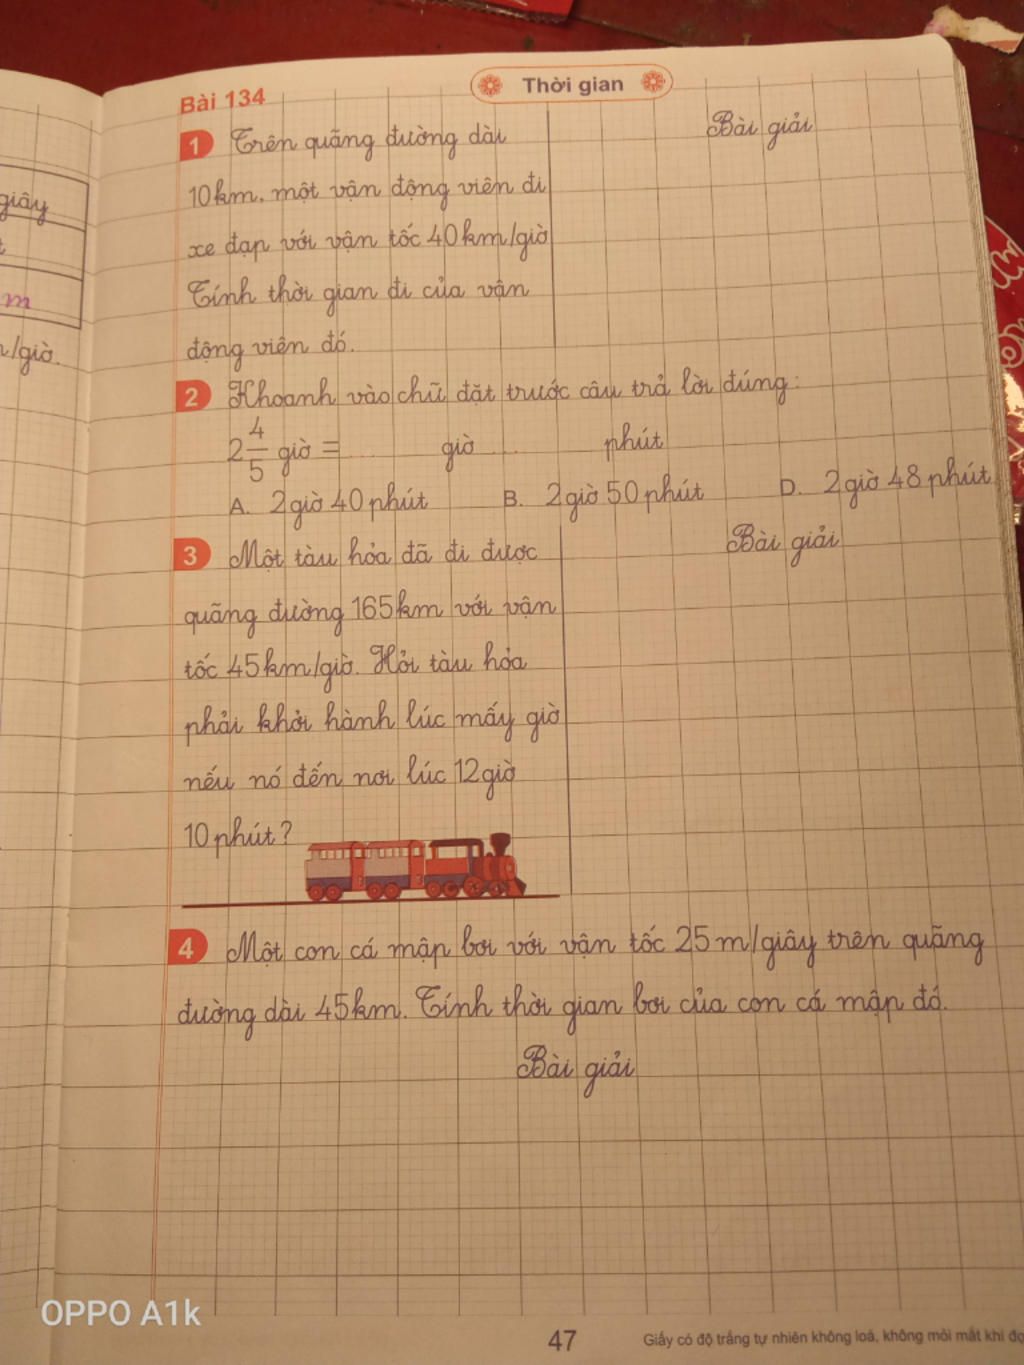 Bài 134
Thời gian
1 Trên quãng đường dài
10km, một vận động viên đi
xe đạp với vận tốc 40km/giờ
Tính thời gian đi của vận
động viên đó.
Bài giải
2 Khoanh vào chữ đặt trước câu trả lời đúng:
2 4/5 giờ = ..... giờ ..... phút
A. 2 giờ 40 phút B. 2 giờ 50 phút D. 2 giờ 48 phút
3 Một tàu hỏa đã đi được
quãng đường 165km với vận
tốc 45km/giờ. Hỏi tàu hỏa
phải khởi hành lúc mấy giờ
nếu nó đến nơi lúc 12 giờ
10 phút?
Bài giải
4 Một con cá mập bơi với vận tốc 25m/giây trên quãng
đường dài 45km. Tính thời gian bơi của con cá mập đó.
Bài giải
giây
m
/giờ.
OPPO A1k
47
Giấy có độ trắng tự nhiên không loá, không mỏi mắt khi